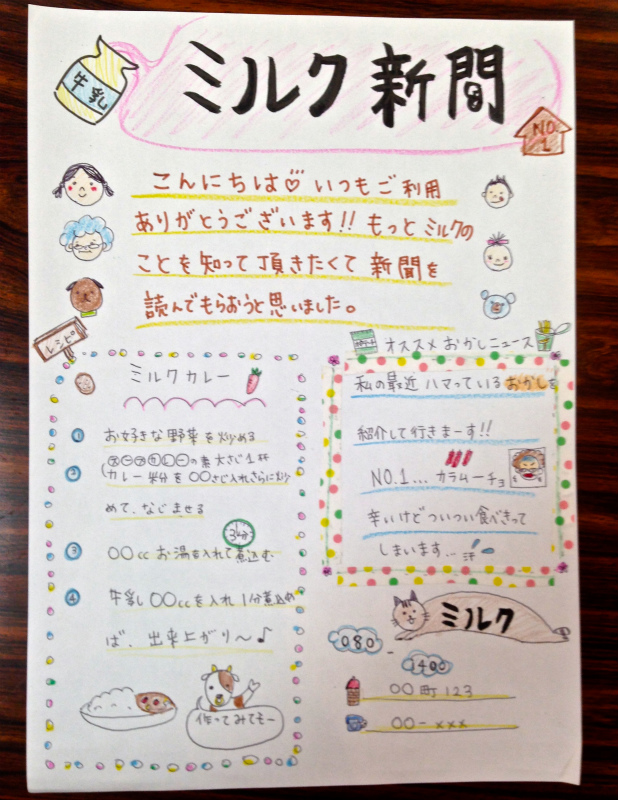 牛乳
ミルク新聞
NO.
1
こんにちは♡いつもご利用
ありがとうございます!! もっとミルクの
ことを知って頂きたくて新聞を
読んでもらおうと思いました。
レシピ
ミルクカレー
① お好きな野菜を炒める
② (スープカレーの素大さじ1杯
(カレー半分を〇〇さじ入れさらに炒
めて、なじませる
3分
③ 〇〇cc お湯を入れて煮込む
④ 牛乳〇〇ccを入れ1分煮込め
ば、出来上がり〜♪
作ってみてもー
オススメおかしニュース
私の最近ハマっているおかしを
紹介して行きまーす!!
NO.1... カラムーチョ
辛いけどついつい食べきって
しまいます... 汗
ミルク
080-
1400
〇〇町123
〇〇-×××